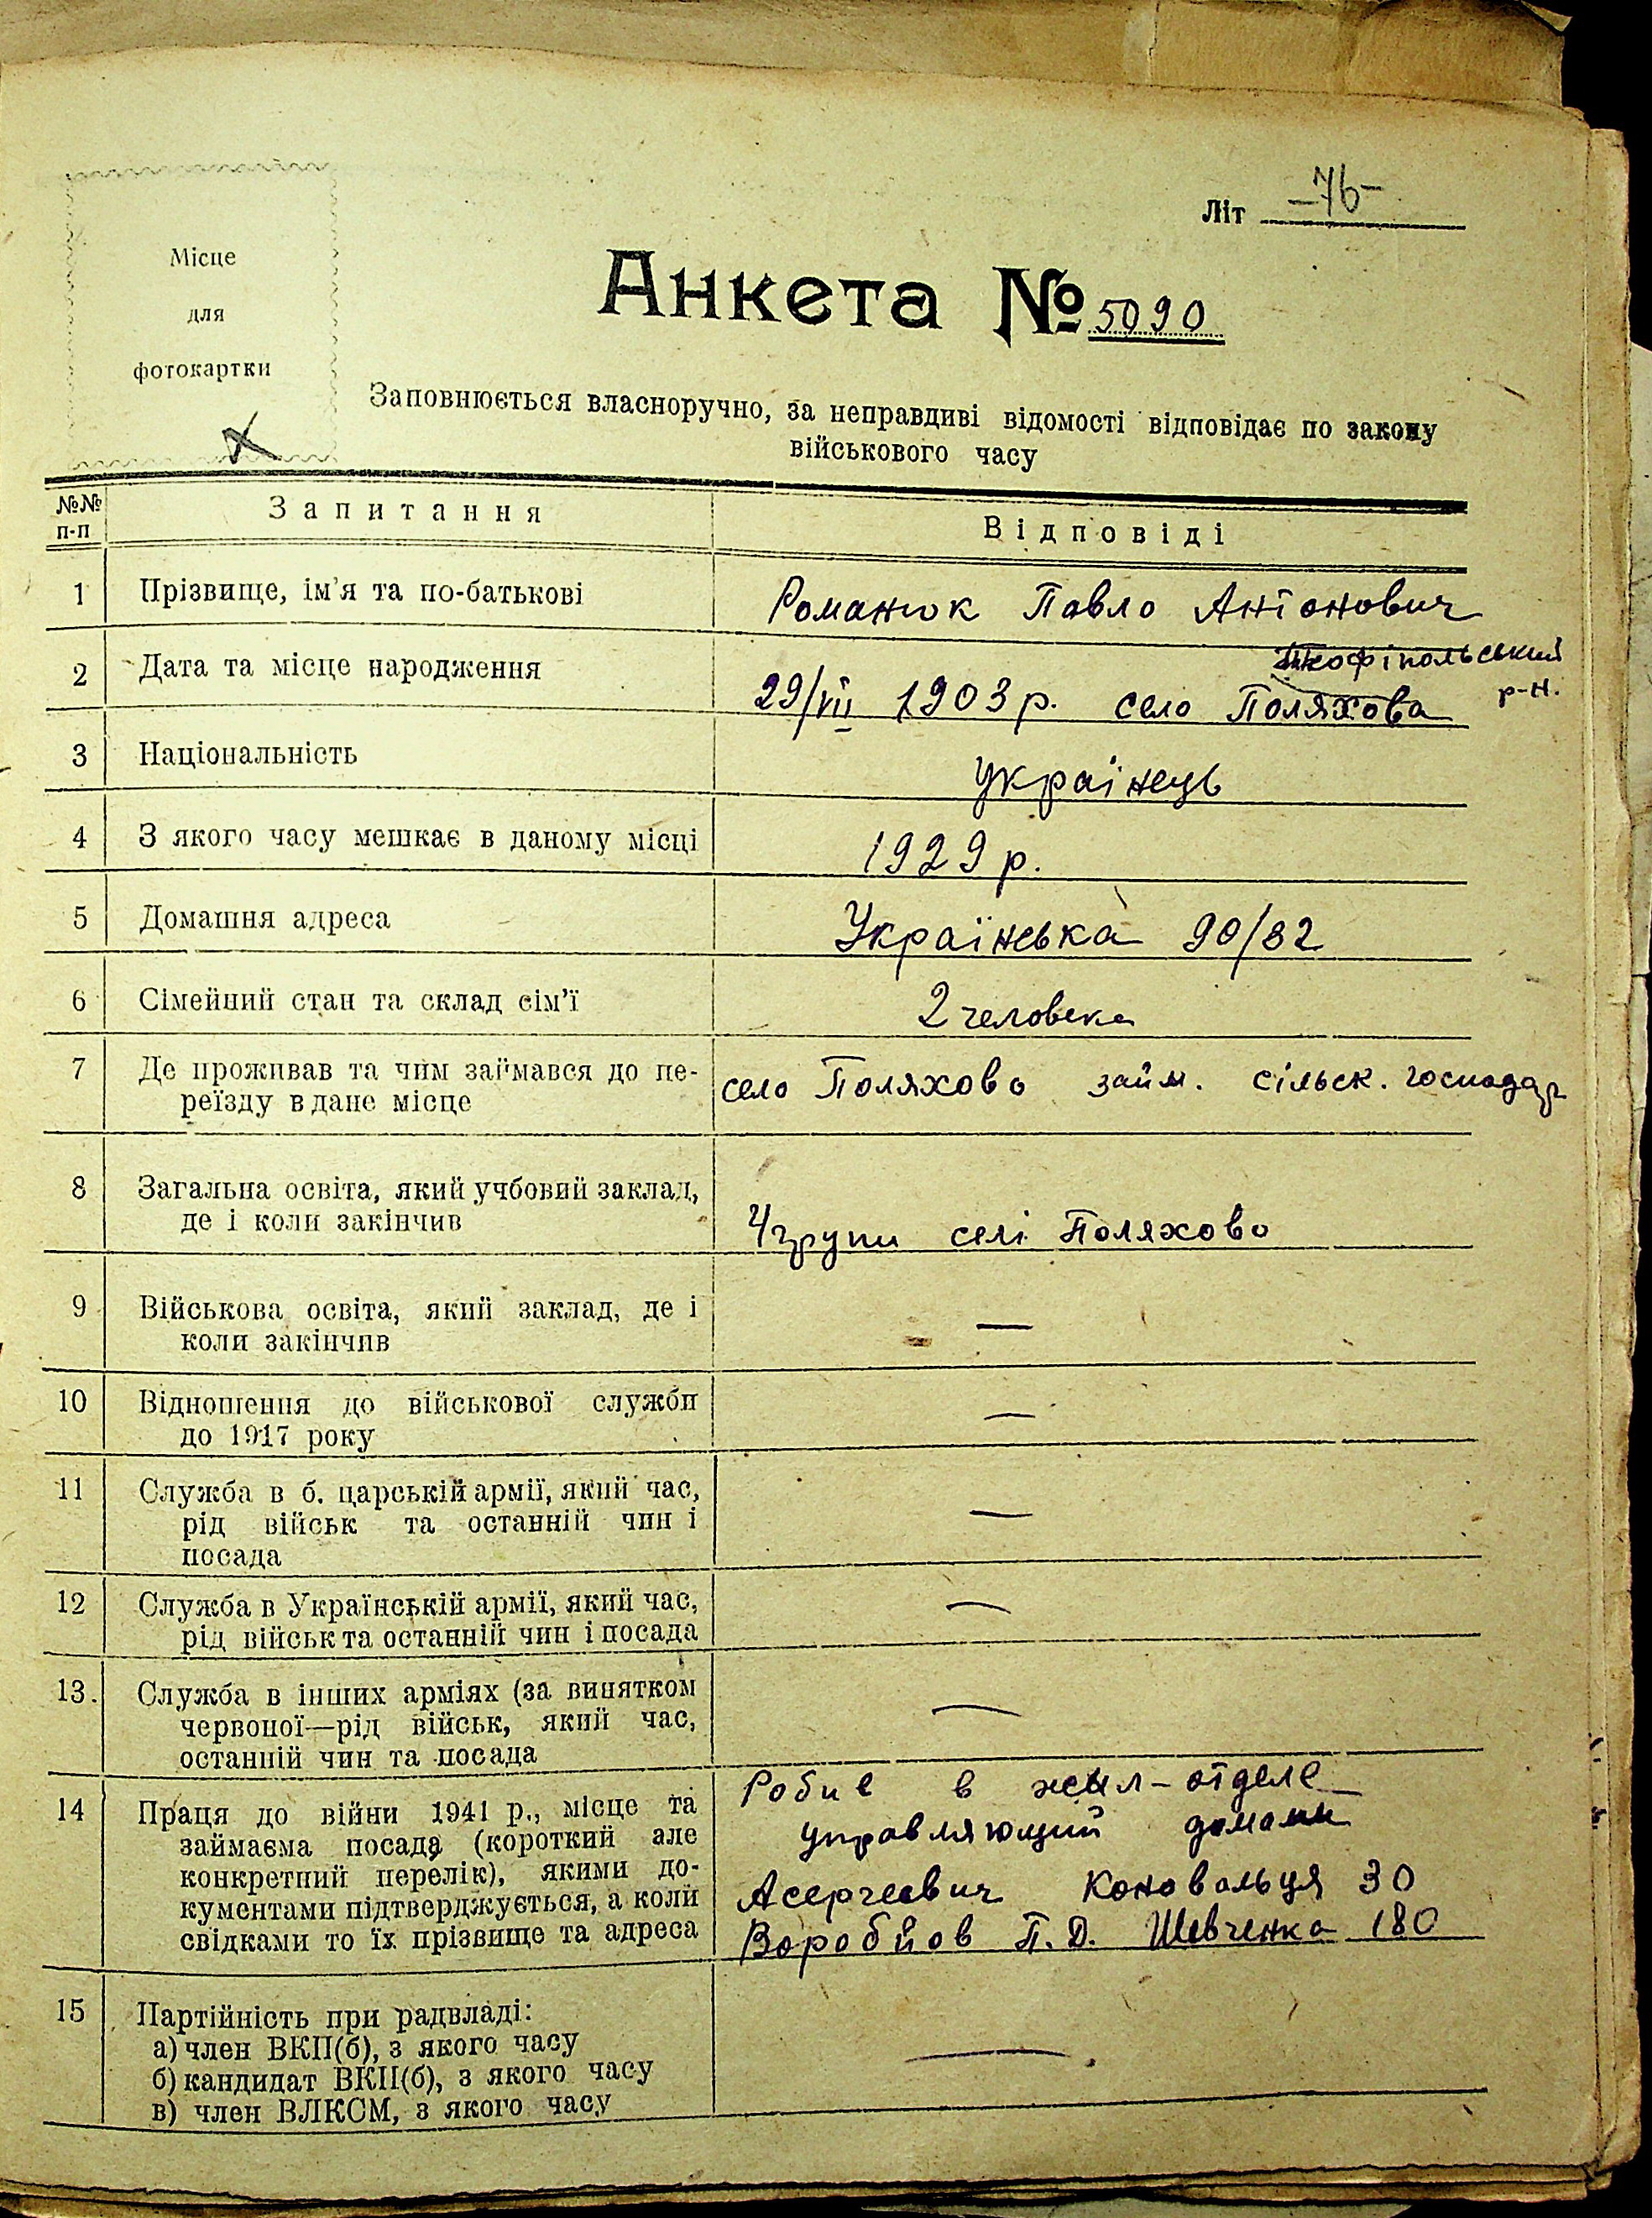 Літ -76-
Місце
для
фотокартки
Анкета № 5090
Заповнюється власноручно, за неправдиві відомості відповідає по закону
військового часу
№№ п-п Запитання Відповіді
1 Прізвище, ім'я та по-батькові Романюк Павло Антонович
2 Дата та місце народження 29/VII 1903 р. село Поляхова Теофіпольський р-н.
3 Національність Українець
4 З якого часу мешкає в даному місці 1929 р.
5 Домашня адреса Українська 90/82
6 Сімейний стан та склад сім'ї 2 человека
7 Де проживав та чим займався до пе-
реїзду в дане місце село Поляхово займ. сільск. господар
8 Загальна освіта, який учбовий заклад,
де і коли закінчив 4 групи селі Поляхово
9 Військова освіта, який заклад, де і —
коли закінчив
10 Відношення до військової служби —
до 1917 року
11 Служба в б. царській армії, який час, —
рід військ та останній чин і
посада
12 Служба в Українській армії, який час, —
рід військ та останній чин і посада
13. Служба в інших арміях (за винятком —
червоної—рід військ, який час,
останній чин та посада
14 Праця до війни 1941 р., місце та Робив в жыл-отделе
займаєма посада (короткий але управляющий домами
конкретний перелік), якими до-
кументами підтверджується, а коли Коновальця 30
свідками то їх прізвище та адреса Воробйов П.Д. Шевченка 180
15 Партійність при радвладі:
а) член ВКП(б), з якого часу —
б) кандидат ВКП(б), з якого часу
в) член ВЛКСМ, з якого часу